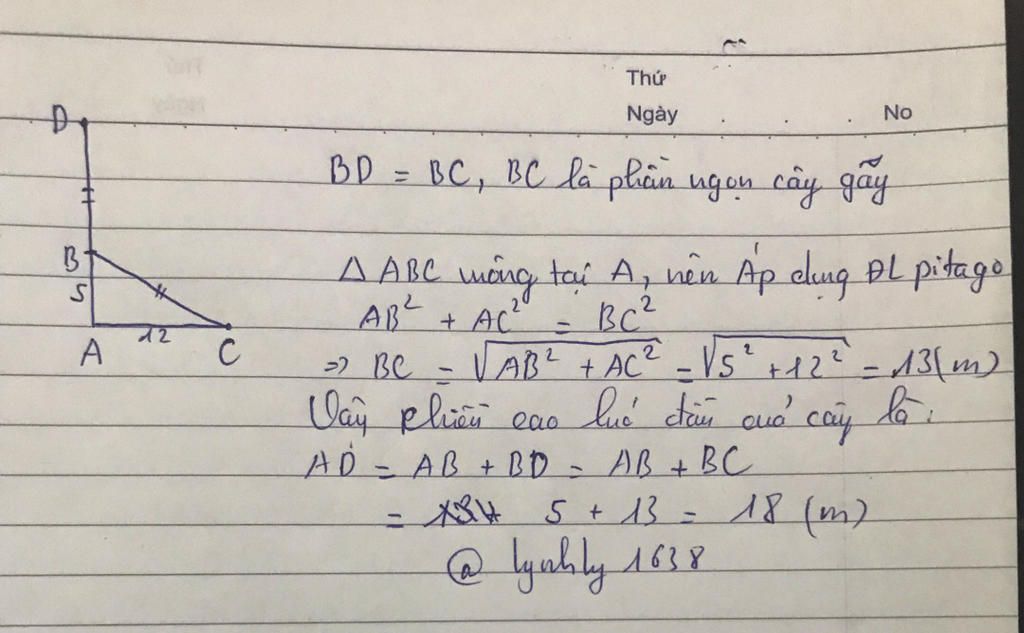 Thứ
Ngày . . . No
D
B
5
A
12
C
BD = BC, BC là phần ngọn cây gãy
Δ ABC vuông tại A, nên Áp dụng ĐL pitago
AB² + AC² = BC²
=> BC = √AB² + AC² = √5² + 12² = 13(m)
Vậy chiều cao lúc đầu cuả cây là:
AD = AB + BD = AB + BC
= 5 + 13 = 18 (m)
@ lynhly 1638